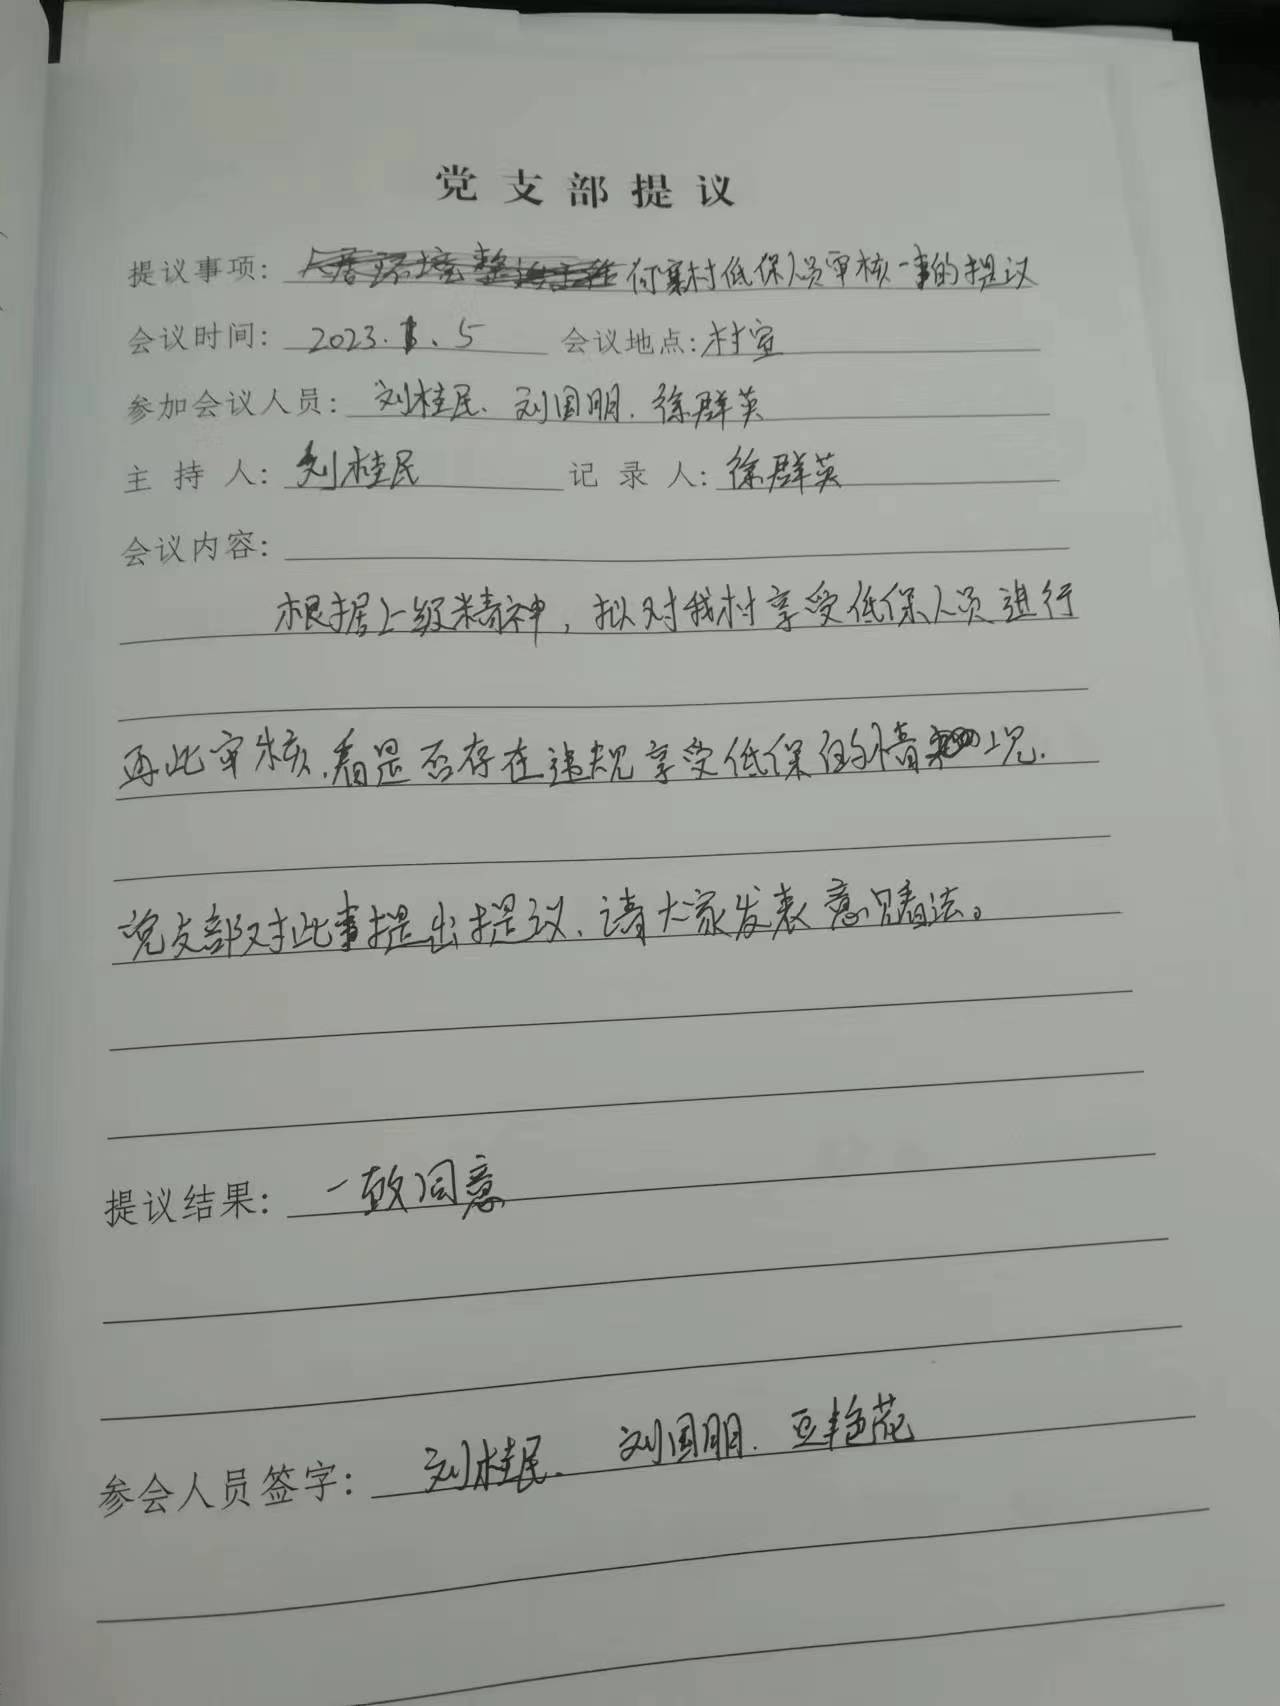 党支部提议
提议事项: 付寨村低保人员审核一事的提议
会议时间: 2023. .5 会议地点: 村室
参加会议人员: 刘桂民、刘国明、徐群英
主持人: 刘桂民 记录人: 徐群英
会议内容:
根据上级精神，拟对我村享受低保人员进行
再此审核，看是否存在违规享受低保的情况.
党支部对此事提出提议，请大家发表意见看法。
提议结果: 一致同意
参会人员签字: 刘桂民、刘国明、豆艳花